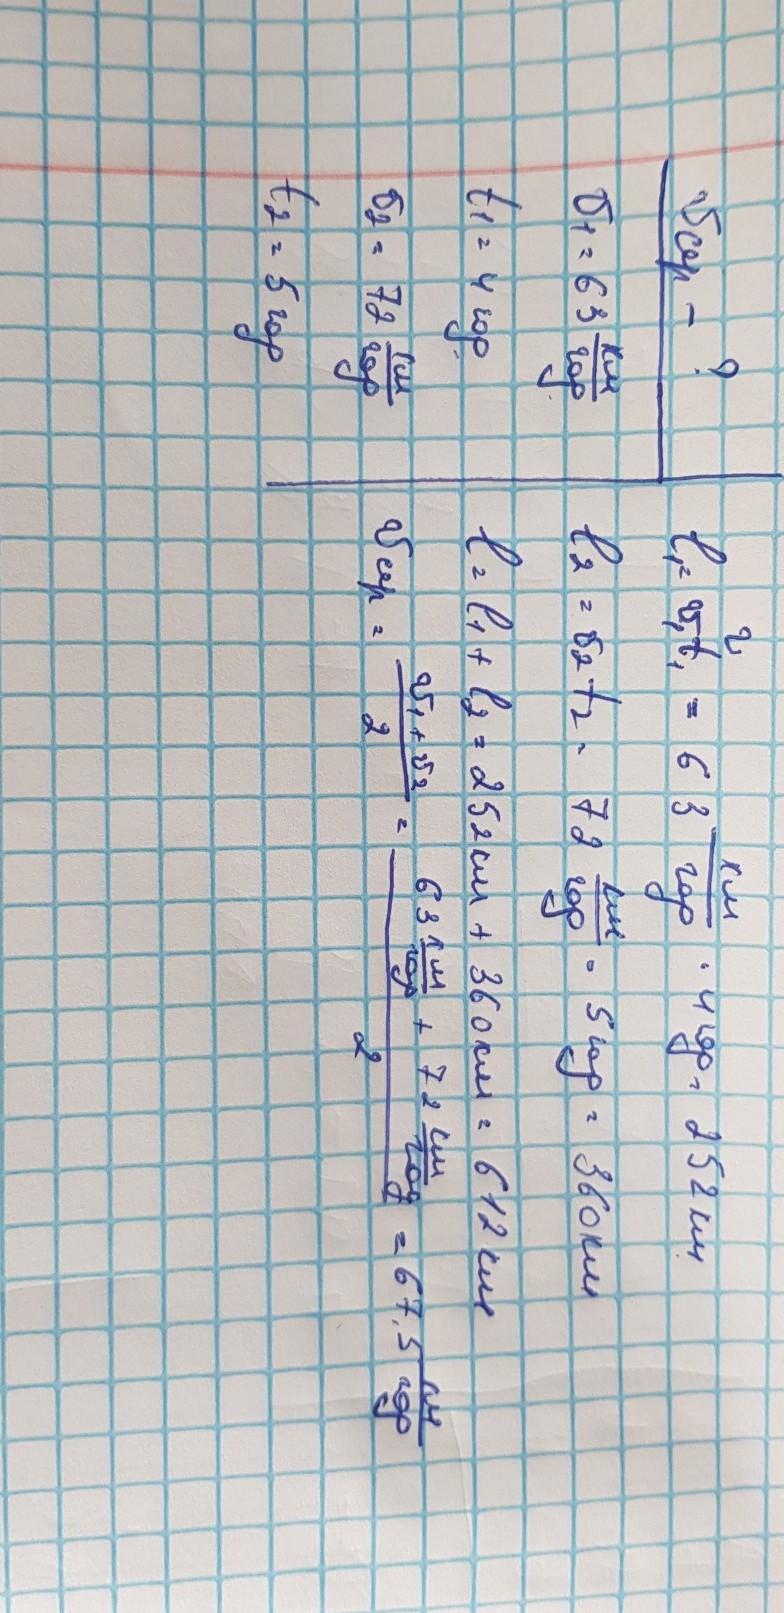 vсер - ?
v1 = 63 км/год
t1 = 4 год
v2 = 72 км/год
t2 = 5 год
l1 = v1t1 = 63 км/год · 4 год = 252 км
l2 = v2t2 = 72 км/год · 5 год = 360 км
l = l1 + l2 = 252 км + 360 км = 612 км
vсер = v1 + v2 / 2 = 63 км/год + 72 км/год / 2 = 67,5 км/год